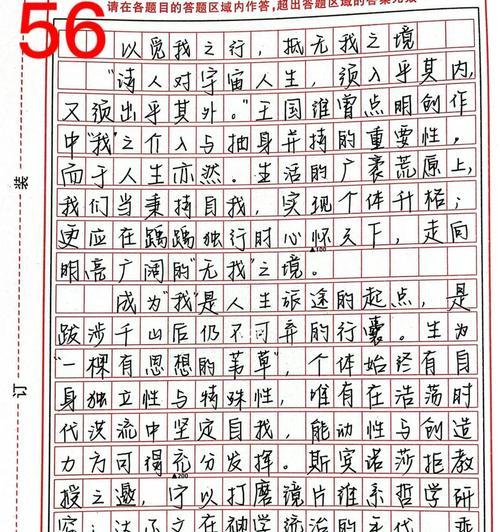 请在各题目的答题区域内作答,超出答题区域的答案无效
56
以觅我之行，抵无我之境
"诗人对宇宙人生，须入乎其内，
又须出乎其外。"王国维曾点明创作
中"我"之介入与抽身并持的重要性，
而于人生亦然。生活的广袤荒原上，
我们当秉持自我，实现个体升格；
更应在踽踽独行时心怀天下，走向
明亮广阔的"无我"之境。
▲100
成为"我"是人生旅途的起点，是
跋涉千山后仍不可弃的行囊。生为
"一棵有思想的苇草"，个体始终有自
身独立性与特殊性，唯有在浩荡时
代洪流中坚定自我，能动性与创造
力方可得充分发挥。斯宾诺莎拒教
▲200
授之邀，宁以打磨镜片维系哲学研
究；法
在神学统治的
装
订